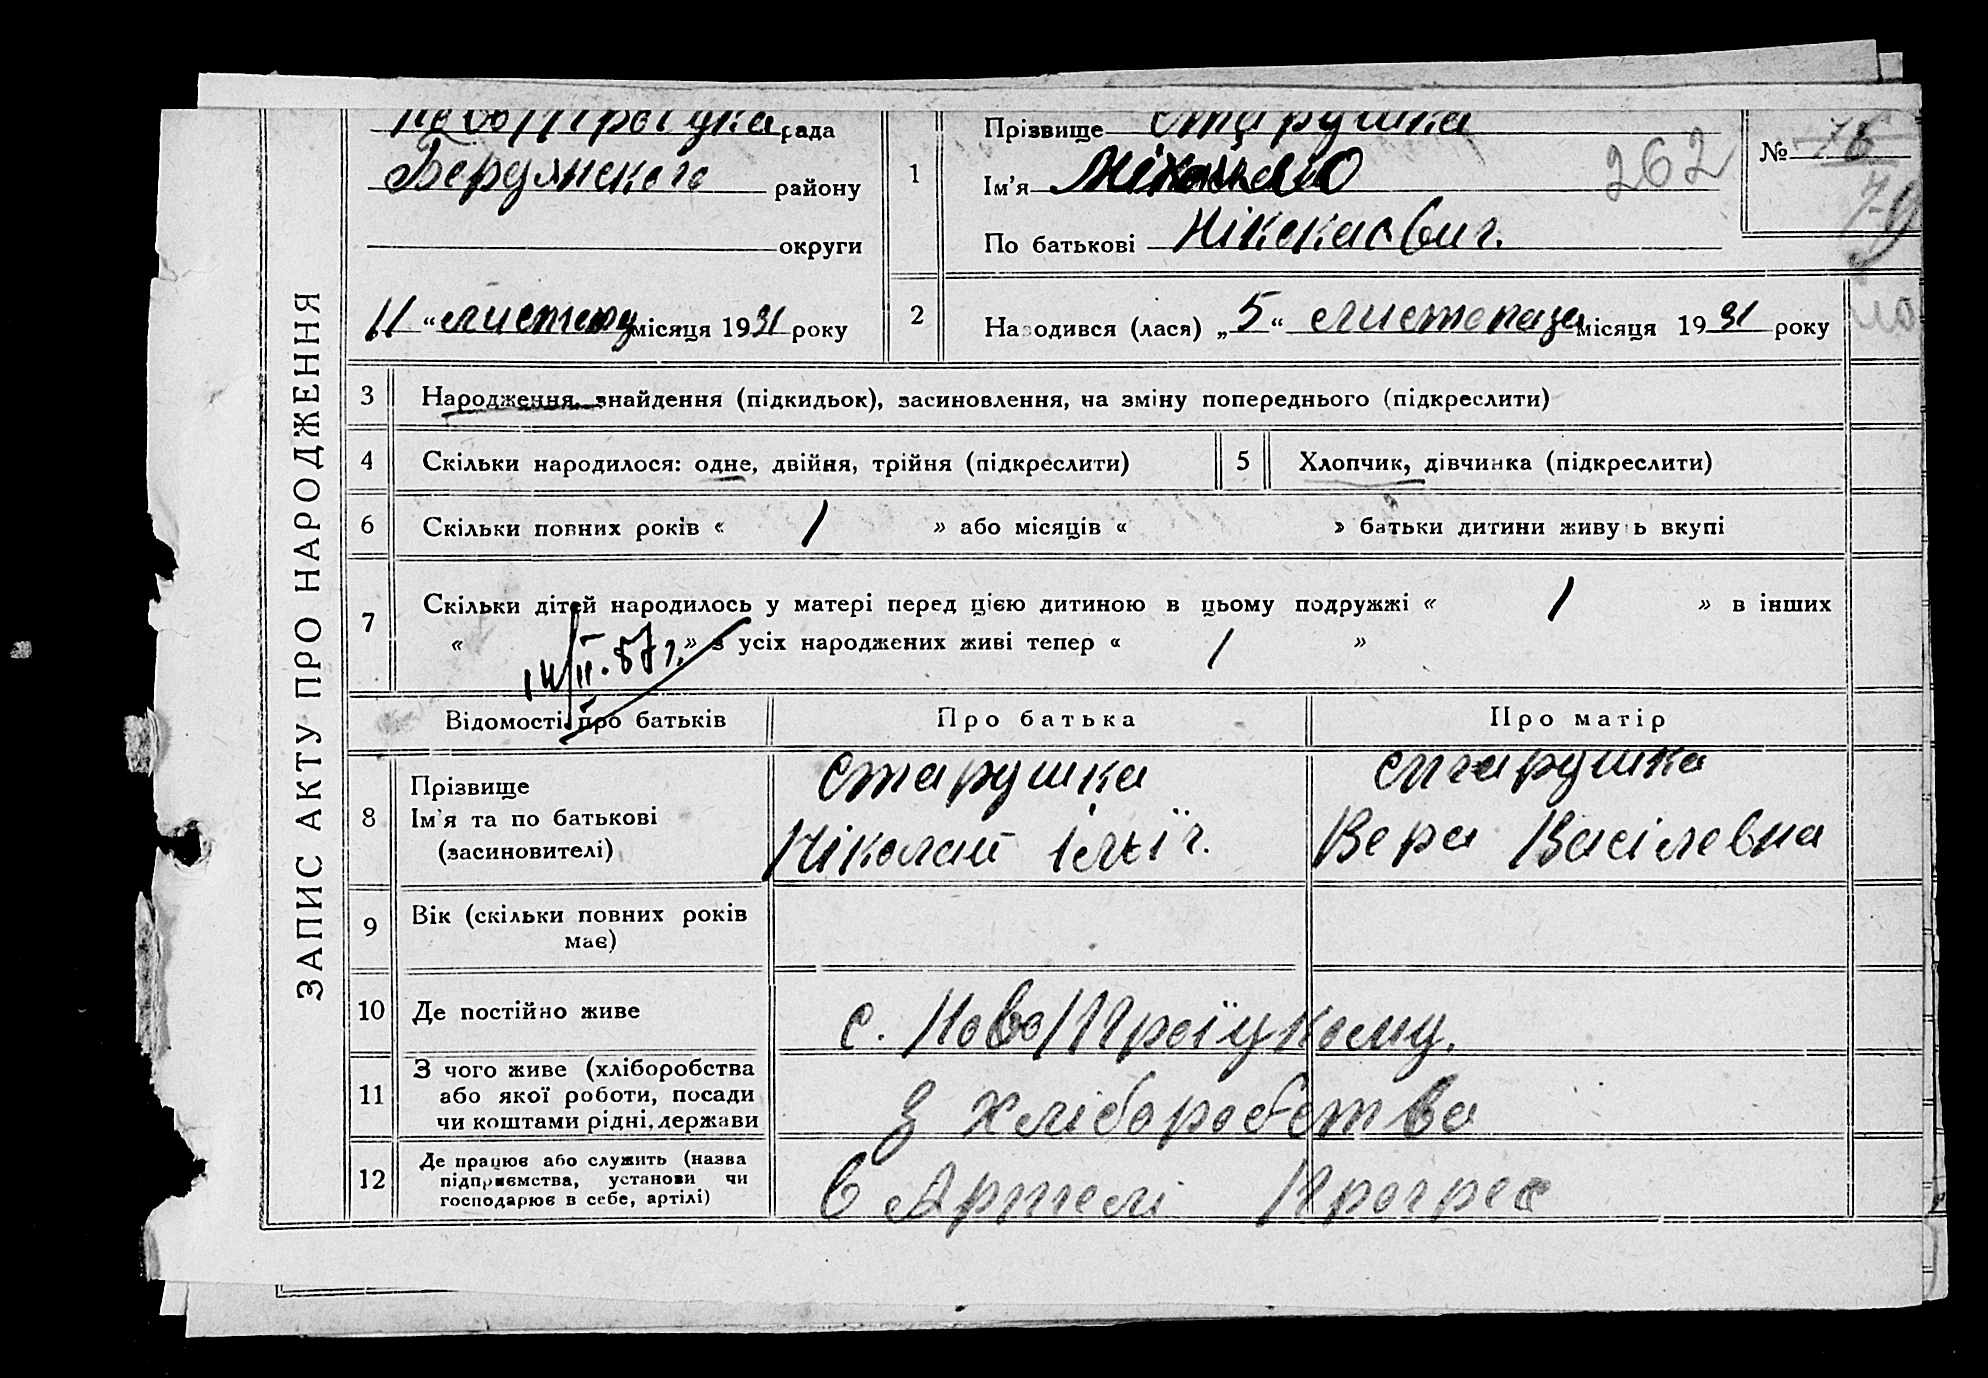 ЗАПИС АКТУ ПРО НАРОДЖЕННЯ
рада
Бердянского району
округи
11 “ листопад місяця 1931 року
1
Прізвище Старушка
Ім’я
262
По батькові
№ 76
2
Народився (лася) „ 5 “ листопада місяця 1931 року
3 Народження, знайдення (підкидьок), засиновлення, на зміну попереднього (підкреслити)
4 Скільки народилося: одне, двійня, трійня (підкреслити)
5 Хлопчик, дівчинка (підкреслити)
6 Скільки повних років « 1 » або місяців « » батьки дитини живуть вкупі
7 Скільки дітей народилось у матері перед цією дитиною в цьому подружжі « 1 » в інших
« » з усіх народжених живі тепер « 1 »
Відомості про батьків
Про батька
Про матір
8 Прізвище
Ім’я та по батькові
(засиновителі)
Старушка
Ніколай Ільїч.
Старушка
Вера Васілевна
9 Вік (скільки повних років
має)
10 Де постійно живе
с. НовоТроїцкому.
11 З чого живе (хліборобства
або якої роботи, посади
чи коштами рідні, держави
З хліборобства
12 Де працює або служить (назва
підприємства, установи чи
господарює в себе, артілі)
в Артелі Прогрес